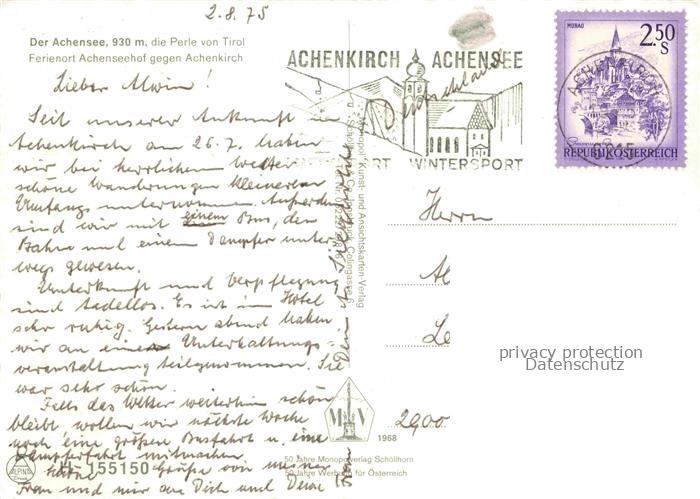 2.8.75
Der Achensee, 930 m, die Perle von Tirol
Ferienort Achenseehof gegen Achenkirch
Lieber Alwin!
Seit unserer Ankunft in
Achenkirch am 26.7. haben
wir bei herrlichem Wetter
schöne Wanderungen kleineren
Umfangs unternommen. Außerdem
sind wir mit einem Bus, der
Bahn und einem Dampfer unter
wegs gewesen.
Unterkunft und Verpflegung
sind tadellos. Es ist im Hotel
sehr ruhig. Gestern abend haben
wir an einer Unterhaltungs-
veranstaltung teilgenommen. Sie
war sehr schön.
Falls das Wetter weiterhin schön
bleibt wollen wir nächste Woche
noch eine größere Busfahrt u. eine
Dampferfahrt mitmachen.
Grüße von meiner
Frau und mir an Dich und Deine
Frau
ALPINA
Druck
H 155150
ACHENKIRCH ACHENSEE
WINTERSPORT
Deutschland
MURAU
2.50
S
REPUBLIK ÖSTERREICH
Monopol Kunst- und Ansichtskarten-Verlag
Herrn
Al
Le
2900
privacy protection
Datenschutz
M V
1968
50 Jahre Monopolverlag Schöllhorn
50 Jahre Werbung für Österreich